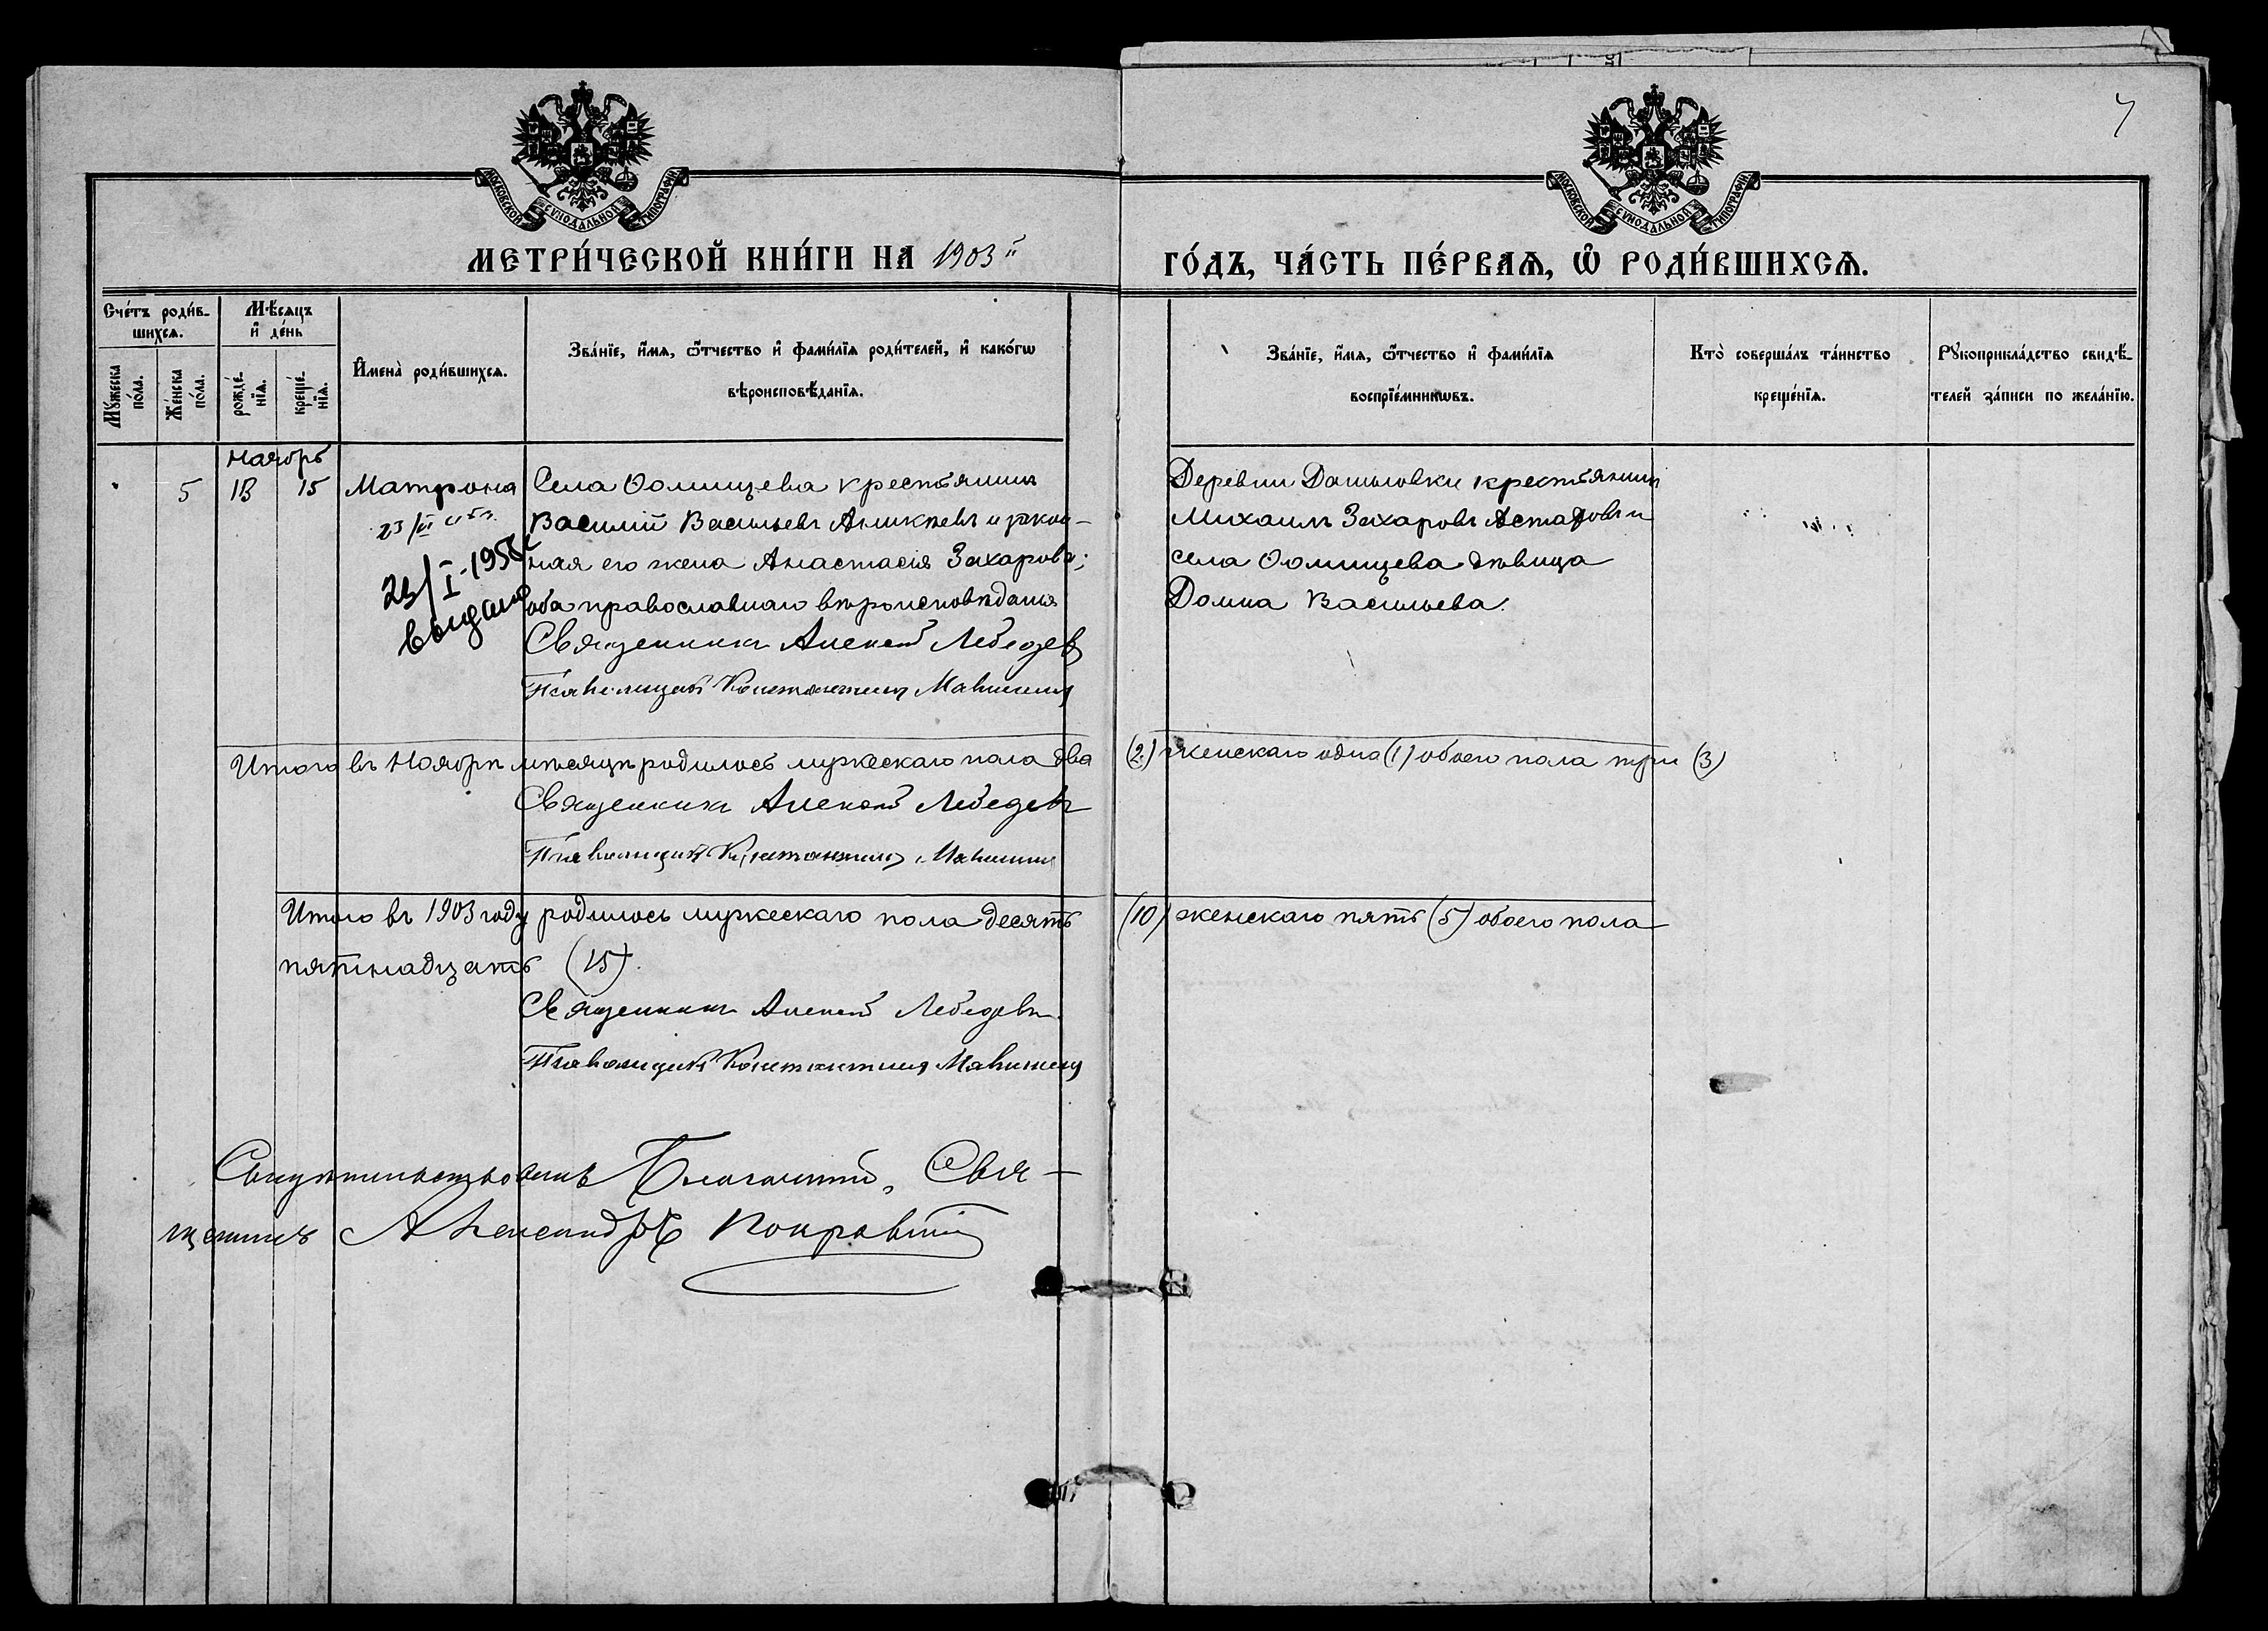 7
МОСКОВСКОЙ СУНОДАЛЬНОЙ ТИПОГРАФІИ
МОСКОВСКОЙ СУНОДАЛЬНОЙ ТИПОГРАФІИ
МЕТРИ́ЧЕСКОЙ КНИ́ГИ НА 1903й ГО́ДЪ, ЧА́СТЬ ПЕ́РВАѦ, Ѡ҆ РОДИ́ВШИХСѦ.
Сче́тъ роди́в-
шихсѧ.
Мꙋ́жеска по́ла.
Же́нска по́ла.
Мѣ́сѧцъ
и҆ де́нь
рожде́-
нїѧ.
креще́-
нїѧ.
И҆мена̀ роди́вшихсѧ.
Зва́нїе, и҆́мѧ, ѻ҆́тчество и҆ фами́лїѧ роди́телей, и҆ како́гѡ
вѣроисповѣ́данїѧ.
Зва́нїе, и҆́мѧ, ѻ҆́тчество и҆ фами́лїѧ
воспрїе́мникѡвъ.
Кто̀ соверша́лъ та́инство
креще́нїѧ.
Рꙋкоприкла́дство свидѣ́-
телей за́писи по жела́нїю.
Ноябрь
5 13 15 Матрона
Села Ѳомищева крестьянин
Василій Васильевъ Аникѣевъ и закон-
ная его жена Анастасія Захарова;
оба православнаго вѣроисповѣданія
Священникъ Алексѣй Лебедев
Псаломщикъ Константинъ
23/I-1956
выдано
Деревни Даниловки крестьянинъ
Михаилъ Захаровъ Астафовъ и
села Ѳомищева дѣвица
Домна Васильева.
Итого въ Ноябрѣ мѣсяцѣ родилось мужескаго пола два (2) женскаго одна (1) обоего пола три (3)
Священникъ Алексѣй Лебедевъ
Псаломщикъ Константинъ
Итого въ 1903 году родилось мужескаго пола десять (10) женскаго пять (5) обоего пола
пятнадцать (15).
Священникъ Алексѣй Лебедевъ
Псаломщикъ Константинъ
Свидѣтельствовалъ Благочинный, Свя-
щенникъ Александръ Покровскій